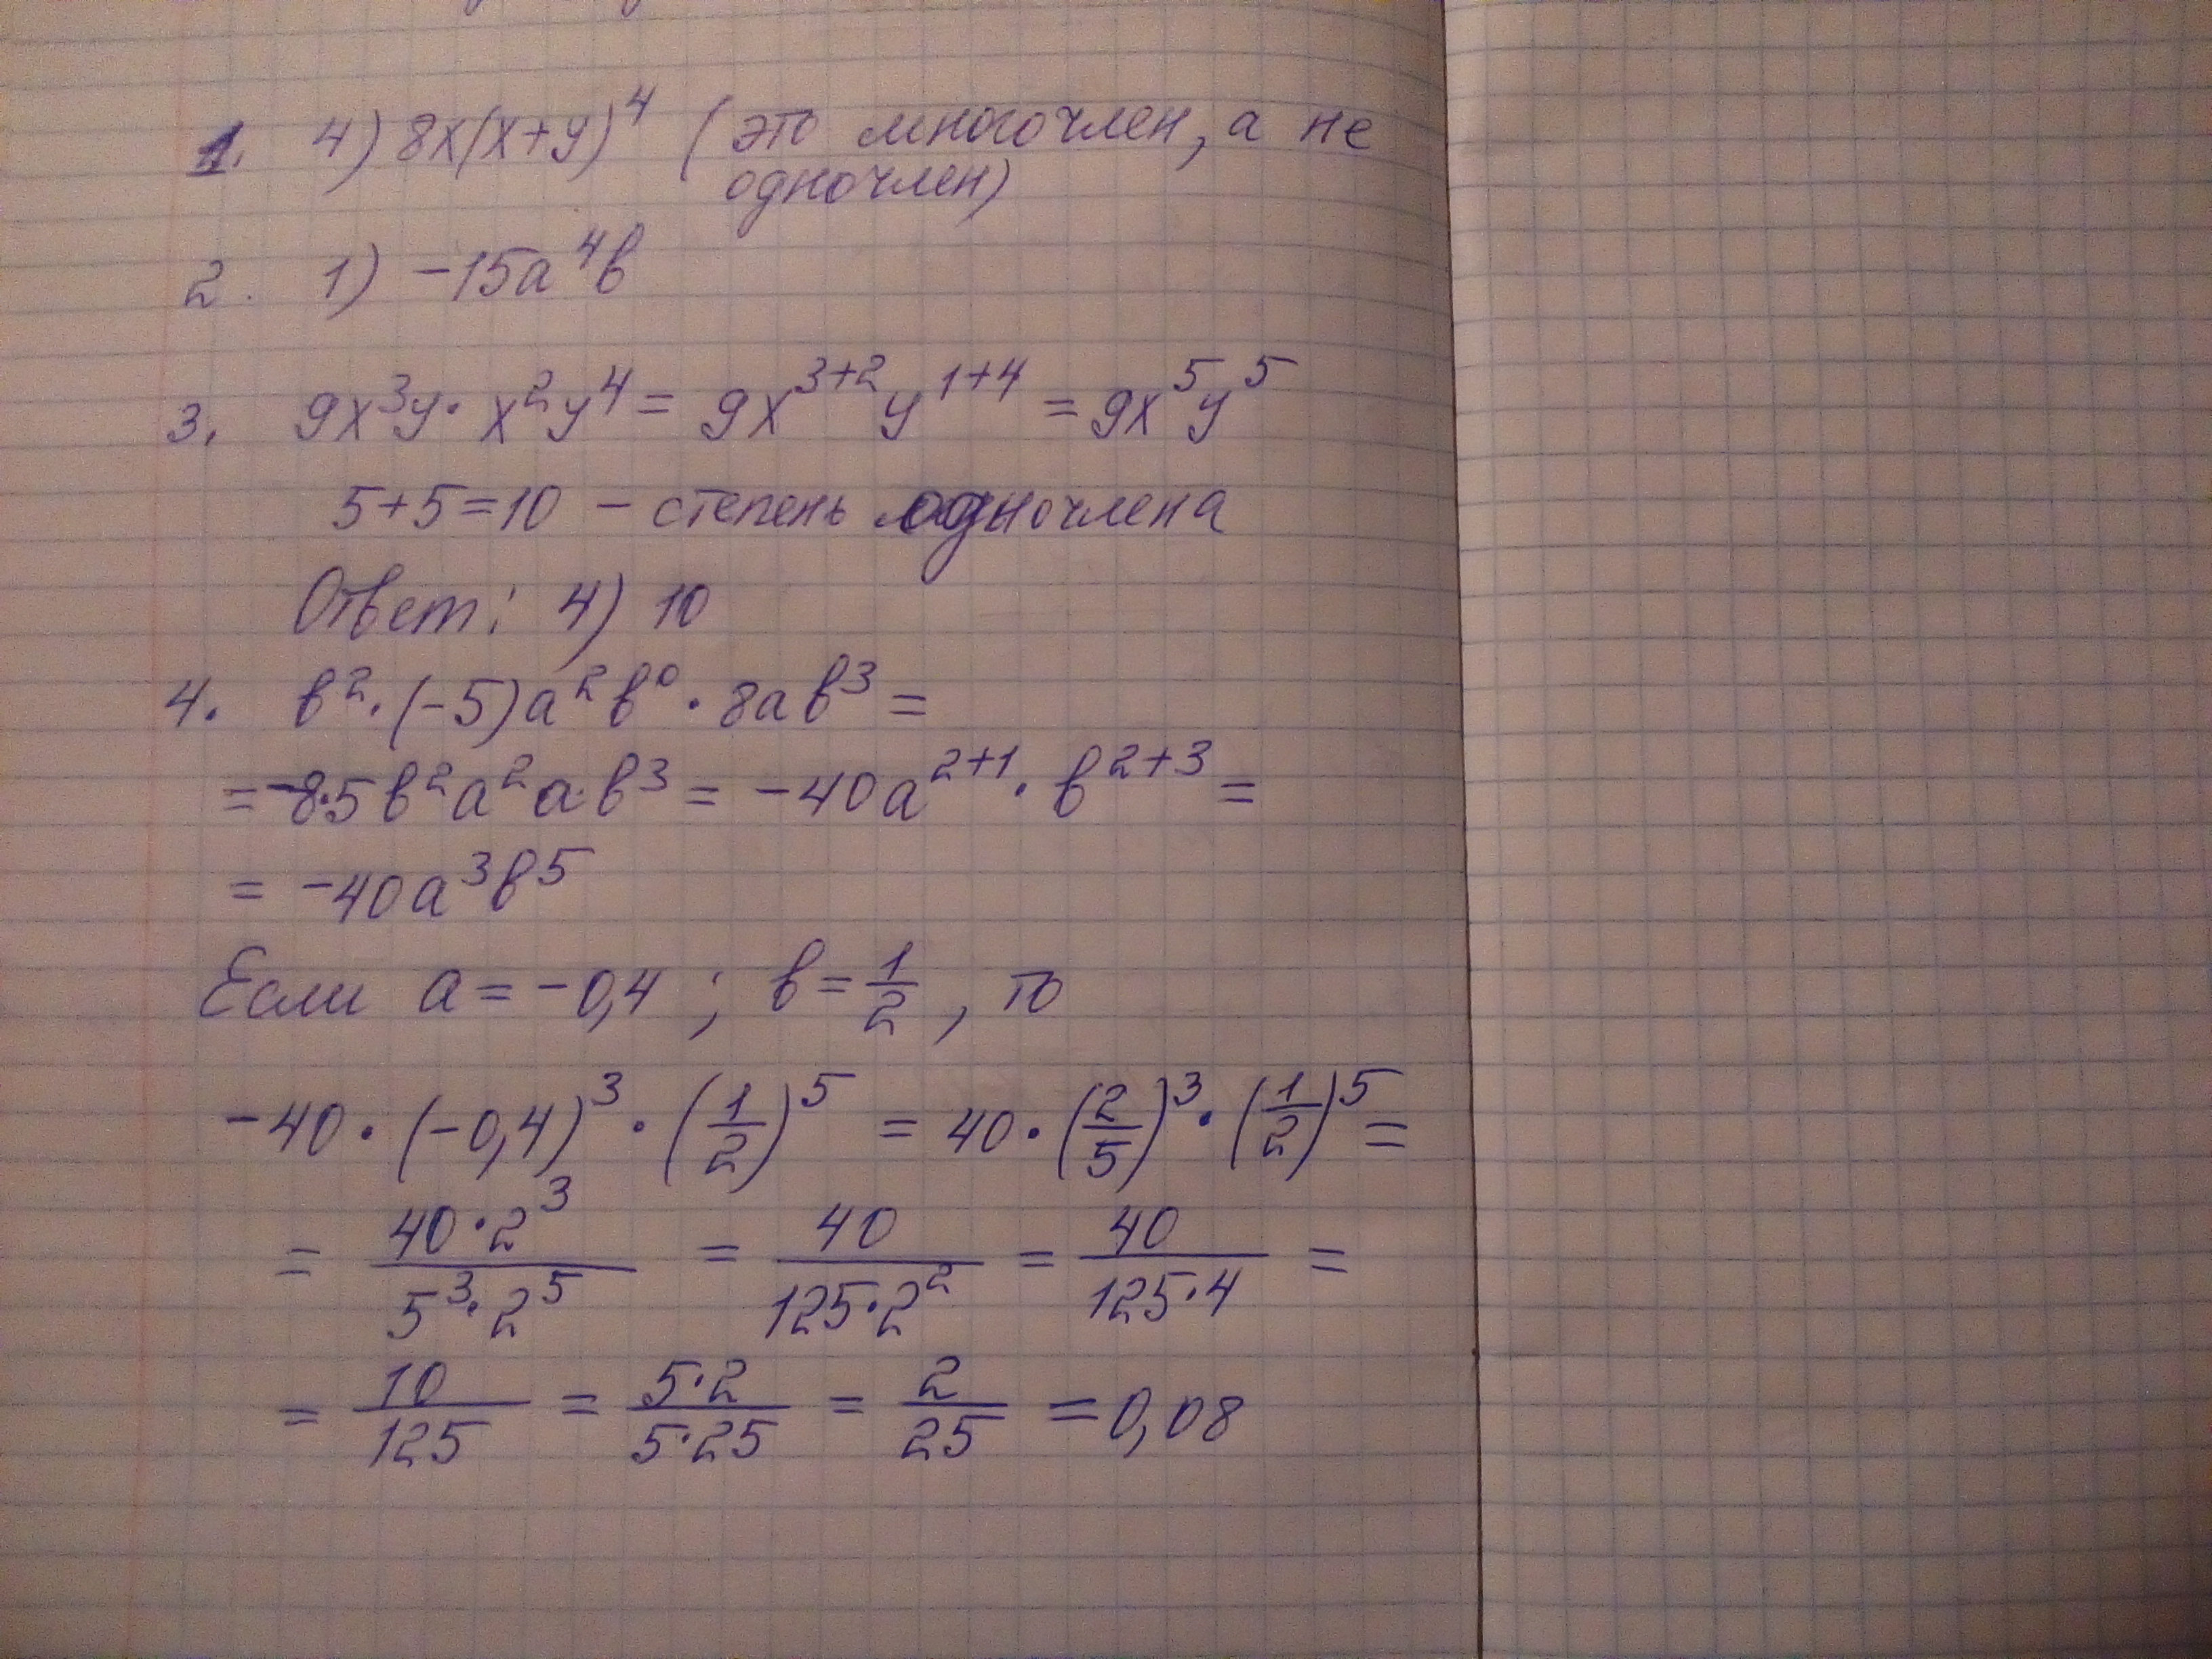 1. 4) 8x(x+y)⁴ (это многочлен, а не
одночлен)
2. 1) -15a⁴b
3. 9x³y · x²y⁴ = 9x³⁺²y¹⁺⁴ = 9x⁵y⁵
5+5=10 – степень одночлена
Ответ: 4) 10
4. b² · (-5)a²b⁰ · 8ab³ =
= -8·5b²a²a·b³ = -40a²⁺¹ · b²⁺³ =
= -40a³b⁵
Если a = -0,4 ; b = 1/2 , то
-40 · (-0,4)³ · (1/2)⁵ = 40 · (2/5)³ · (1/2)⁵ =
= (40·2³)/(5³·2⁵) = 40/(125·2²) = 40/(125·4) =
= 10/125 = (5·2)/(5·25) = 2/25 = 0,08